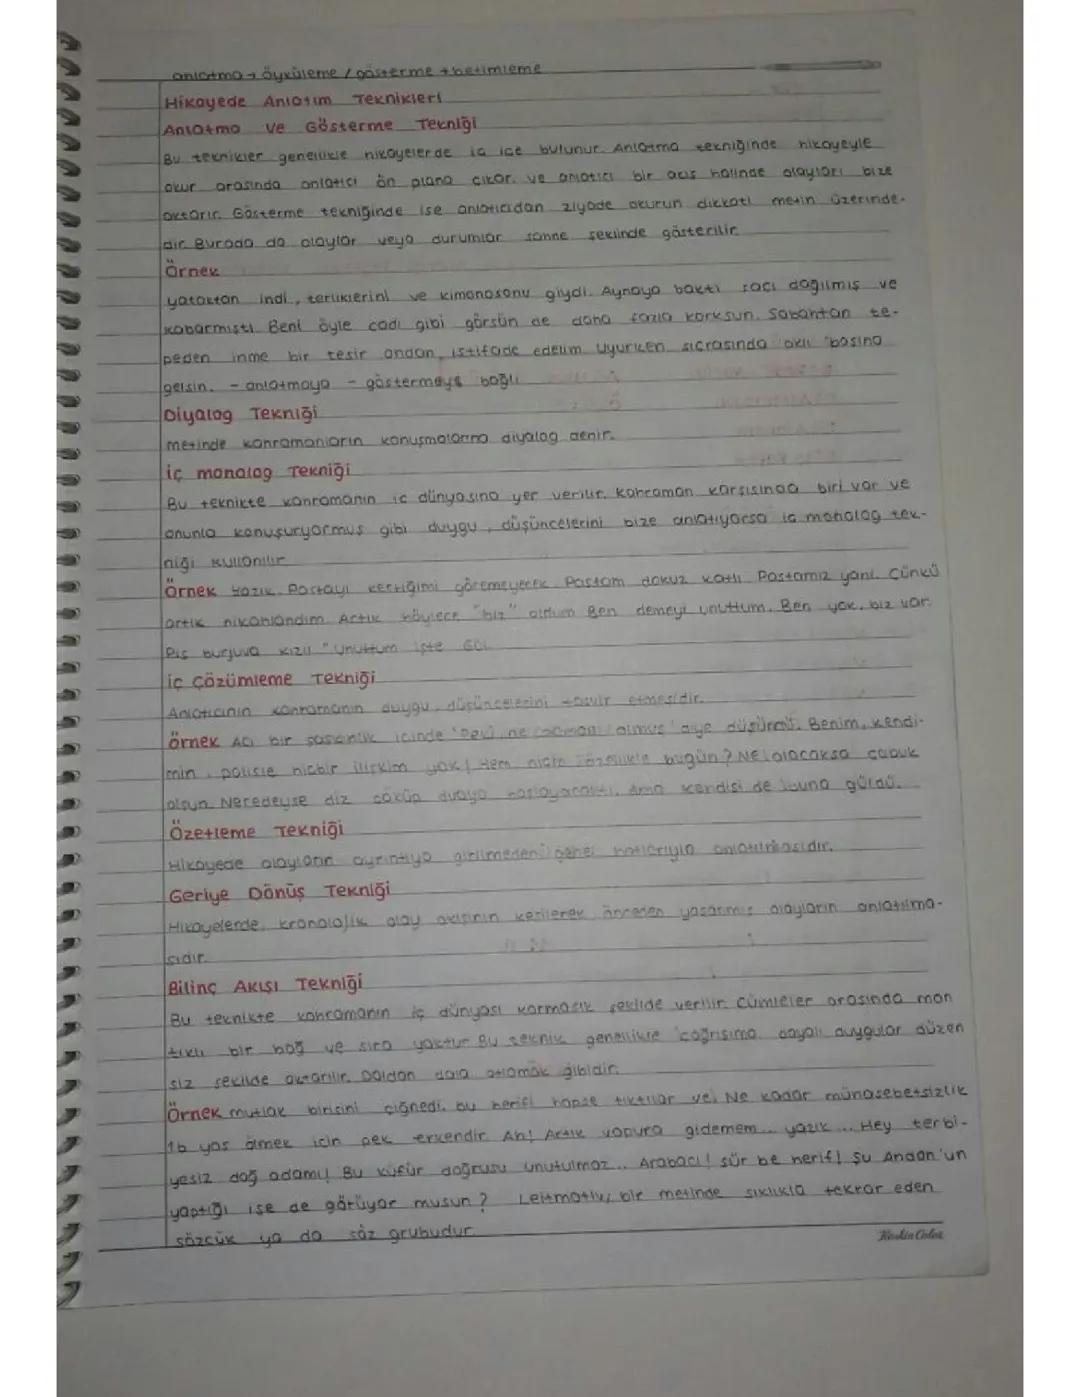 anlatma → öyküleme / gösterme → betimleme
Hikayede Anlatım Teknikleri
Anlatma ve Gösterme Tekniği
Bu teknikler genellikle hikayelerde iç içe bulunur. Anlatma tekniğinde hikayeyle
okur arasında anlatıcı ön plana çıkar. ve anlatıcı bir akış halinde olayları bize
aktarır. Gösterme tekniğinde ise anlatıcıdan ziyade okurun dikkati metin üzerinde-
dir. Burada da olaylar veya durumlar sahne şeklinde gösterilir.
Örnek
yataktan indi, terliklerini ve kimonosonu giydi. Aynaya baktı saçı dağılmış ve
kabarmıştı. Beni öyle cadı gibi görsün de daha fazla korksun. Sabahtan te-
peden inme bir tesir ondan istifade edelim. Uyurken sıçrasında aklı başına
gelsin. - anlatmaya - göstermeye bağlı
Diyalog Tekniği
metinde kahramanların konuşmalarına diyalog denir.
İç monolog Tekniği
Bu teknikte kahramanın iç dünyasına yer verilir. Kahraman karşısında biri var ve
onunla konuşuryormuş gibi duygu, düşüncelerini bize anlatıyorsa iç monolog tek-
niği kullanılır.
Örnek Yazık. Pastayı kestiğimi göremeyecek. Pastam dokuz katlı. Pastamız yani. Çünkü
artık nikahlandım. Artık böylece "biz" oldum. Ben demeyi unuttum. Ben yok, biz var.
Pis burjuva kızı! "Unuttum işte
İç Çözümleme Tekniği
Anlatıcının kahramanın duygu, düşüncelerini tasvir etmesidir.
Örnek Acı bir şaşkınlık içinde ne olmuş diye düşündü. Benim, kendi-
min, polisle hiçbir ilişkim yok! Hem niçin özellikle bugün? Ne olacaksa çabuk
olsun. Neredeyse diz çöküp duaya başlayacaktı. Ama kendisi de buna güldü.
Özetleme Tekniği
Hikayede olayların ayrıntıya girilmeden genel hatlarıyla anlatılmasıdır.
Geriye Dönüş Tekniği
Hikayelerde, kronolojik olay akışının kesilerek önceden yaşanmış olayların anlatılma-
sıdır.
Bilinç Akışı Tekniği
Bu teknikte kahramanın iç dünyası karmaşık şekilde verilir. Cümleler arasında man
tıklı bir bağ ve sıra yoktur. Bu teknik genellikle çağrışıma dayalı duygular düzen
siz şekilde aktarılır. Daldan dala atlamak gibidir.
Örnek mutlak birisini çiğnedi. bu herifi hapse tıktılar ve! Ne kadar münasebetsizlik
16 yaş ölmek için pek erkendir. Ah! Artık vapura gidemem... yazık... Hey terbi-
yesiz dağ adamı! Bu küfür doğrusu unutulmaz... Arabacı! sür be herif! Şu Andan'un
yaptığı işe de görüyor musun? Leitmotiv, bir metinde sıklıkla tekrar eden
sözcük ya da söz grubudur.
Keskin Color